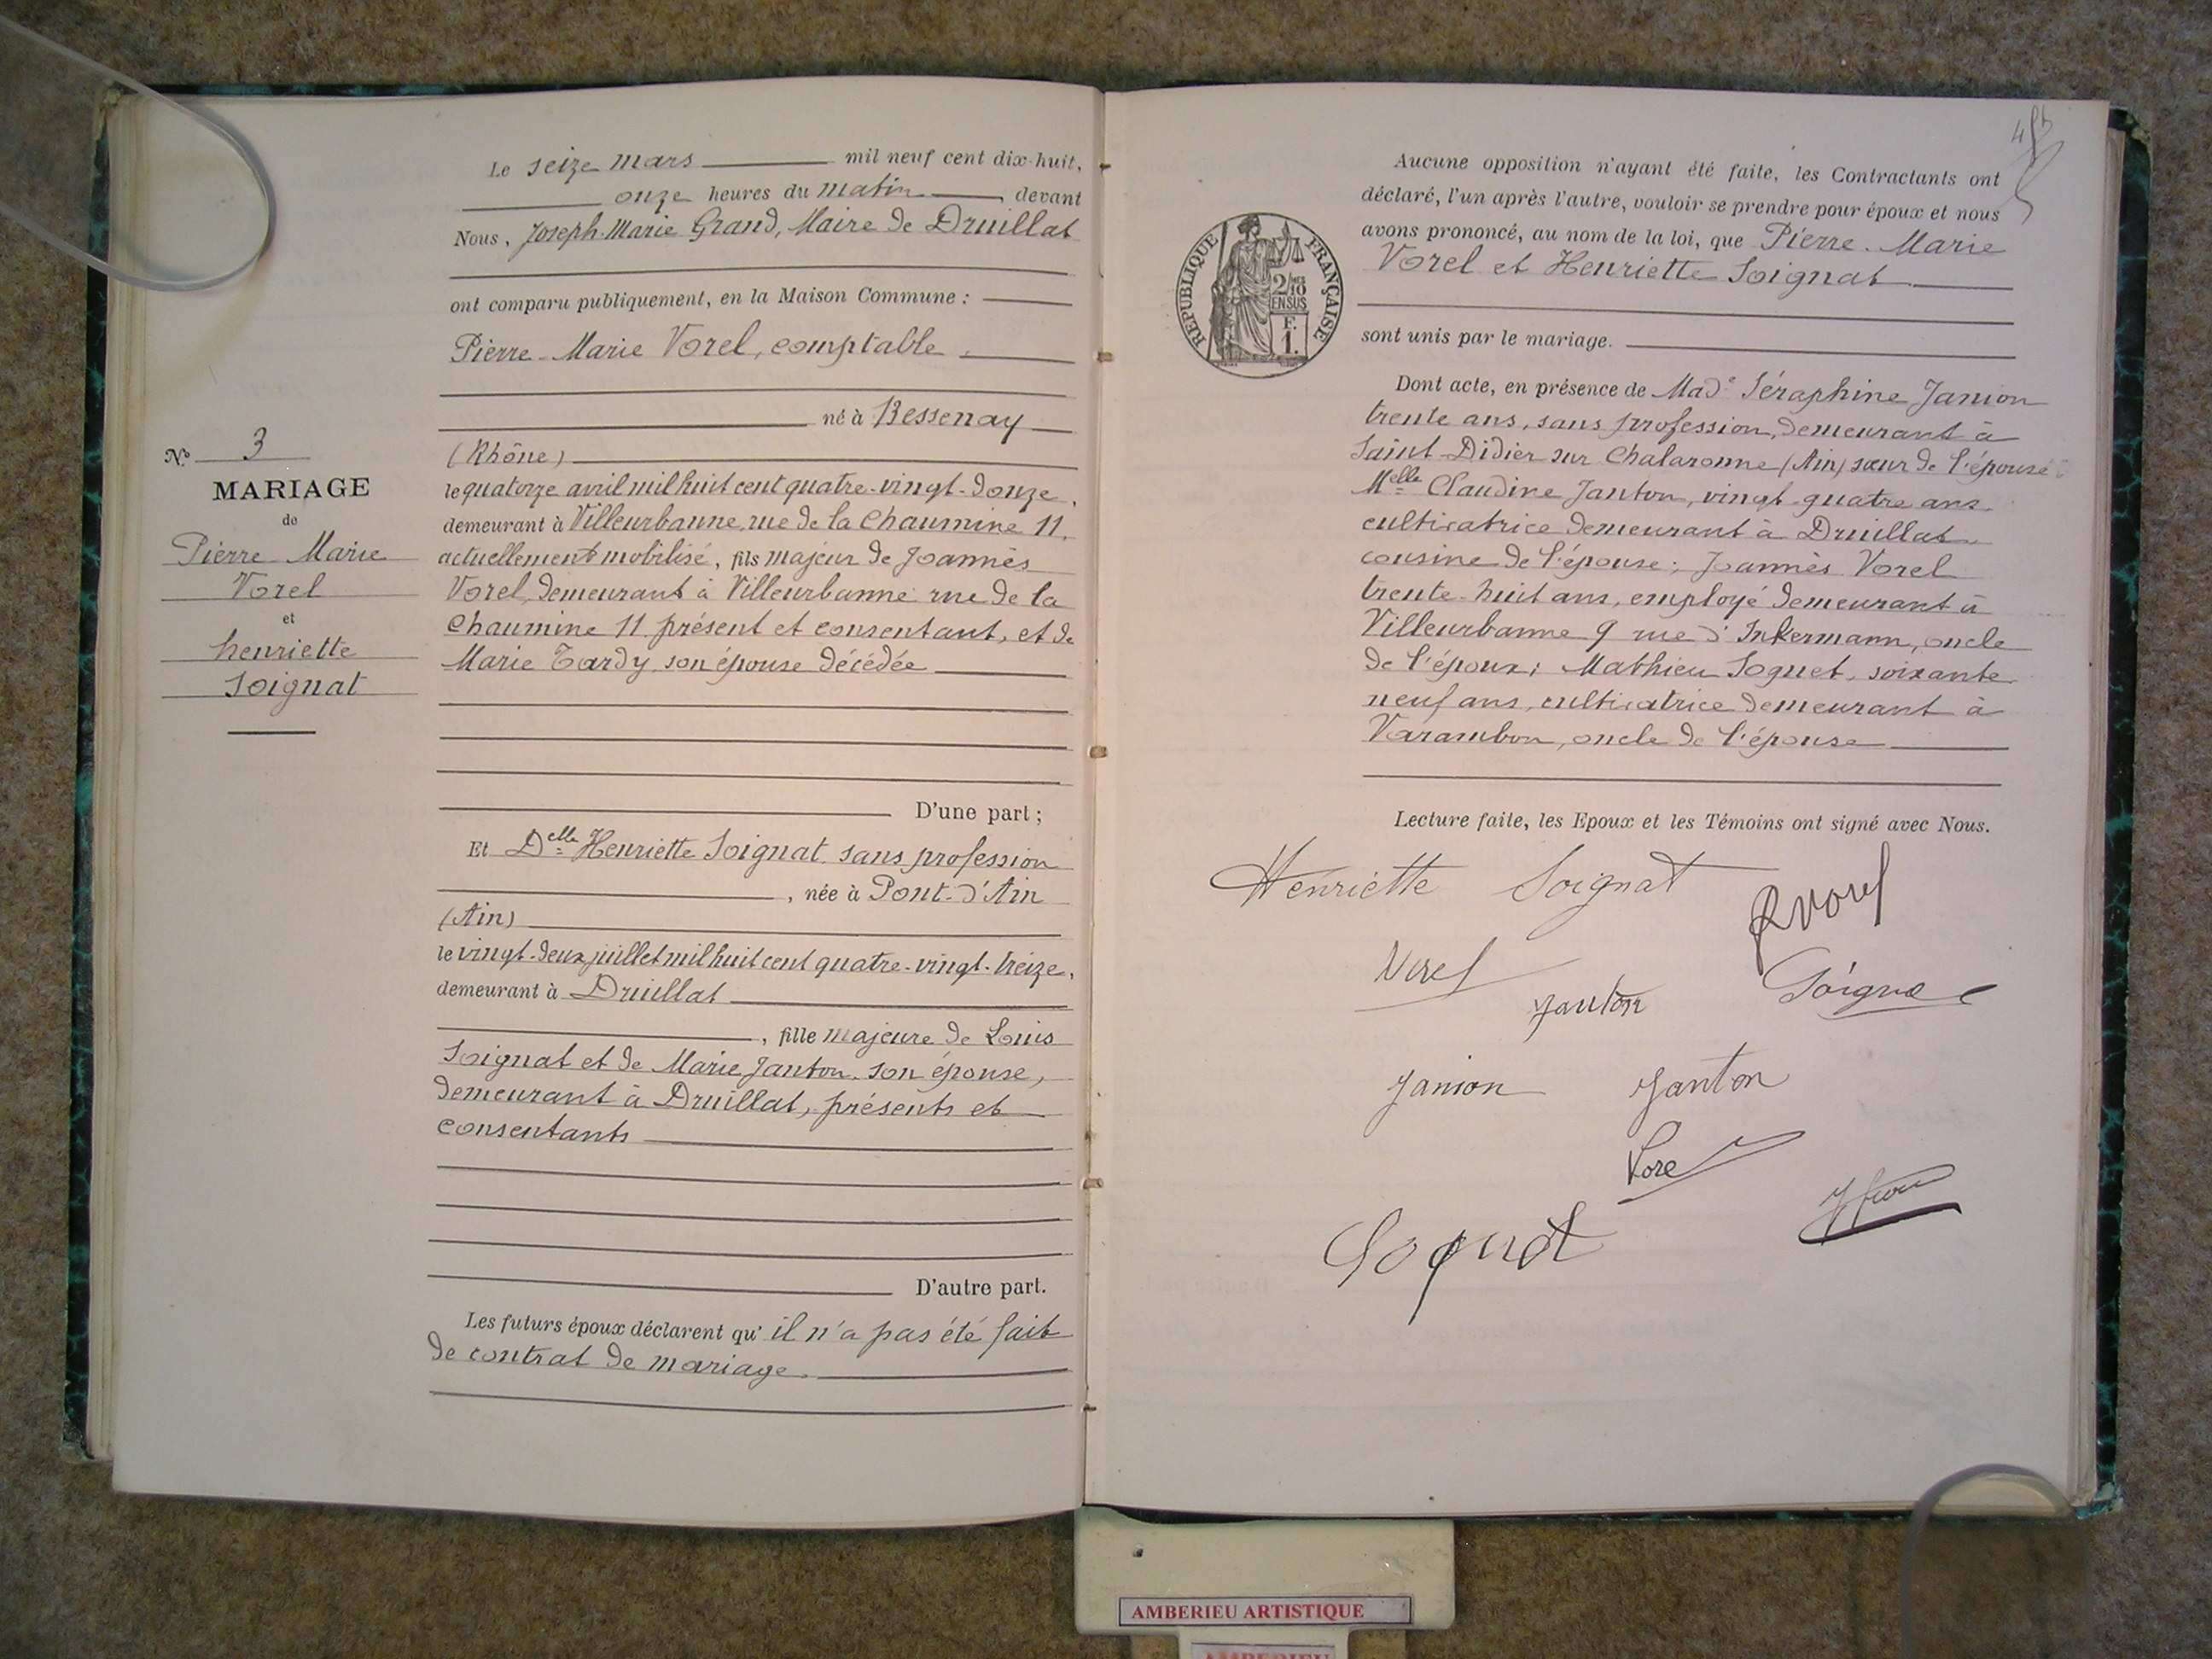 Nº 3
MARIAGE
de
Pierre-Marie
Vorel
et
henriette
Soignat
Le seize mars mil neuf cent dix-huit,
onze heures du matin, devant
Nous, Joseph-Marie Grand, Maire de Druillat
ont comparu publiquement, en la Maison Commune :
Pierre-Marie Vorel, comptable
né à Bessenay
(Rhône)
le quatorze avril mil huit cent quatre-vingt-douze,
demeurant à Villeurbanne, rue de la Chaumine 11,
actuellement mobilisé, fils majeur de Joannès
Vorel, demeurant à Villeurbanne rue de la
Chaumine 11 présent et consentant, et de
Marie Tardy, son épouse décédée
D'une part ;
Et Delle Henriette Soignat sans profession
, née à Pont-d'Ain
(Ain)
le vingt-deux juillet mil huit cent quatre-vingt-treize,
demeurant à Druillat
, fille majeure de Louis
Soignat et de Marie Janton, son épouse,
demeurant à Druillat, présents et
consentants
D'autre part.
Les futurs époux déclarent qu'il n'a pas été fait
de contrat de mariage.
Aucune opposition n'ayant été faite, les Contractants ont
déclaré, l'un après l'autre, vouloir se prendre pour époux et nous
avons prononcé, au nom de la loi, que Pierre-Marie
Vorel et Henriette Soignat
sont unis par le mariage.
REPUBLIQUE FRANÇAISE
2/10
EN SUS
F.
1.
Dont acte, en présence de Made Séraphine Janion
trente ans, sans profession, demeurant à
Saint-Didier sur Chalaronne (Ain) sœur de l'épouse
Melle Claudine Janton, vingt-quatre ans
cultivatrice demeurant à Druillat,
cousine de l'épouse ; Joannès Vorel
trente-huit ans, employé demeurant à
Villeurbanne 9 rue d'Inkermann, oncle
de l'époux ; Mathieu Soguet, soixante
neuf ans, cultivatrice demeurant à
Varambon, oncle de l'épouse
Lecture faite, les Epoux et les Témoins ont signé avec Nous.
Henriette Soignat
PVorel
Vorel
Janton
Soignat
Janion
Janton
Vorel
Soguet
AMBERIEU ARTISTIQUE
AMBERIEU